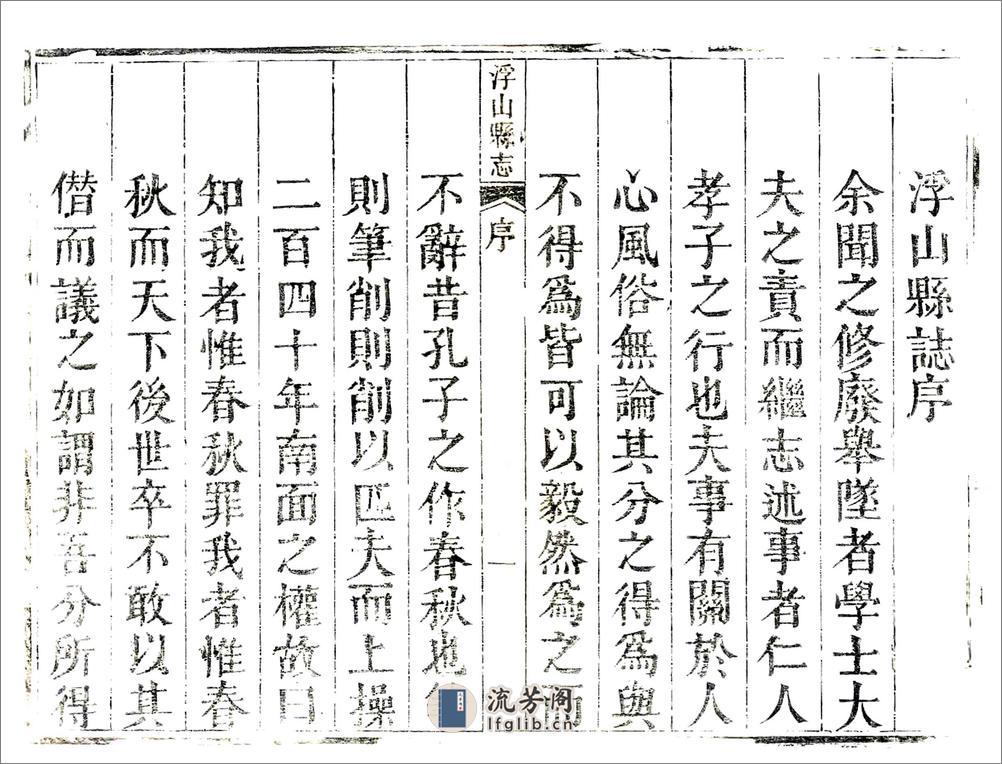 浮山縣誌序
余聞之修廢舉墜者學士大
夫之責而繼志述事者仁人
孝子之行也夫事有關於人
心風俗無論其分之得為與
不得為皆可以毅然為之而
浮山縣志
序
一
不辭昔孔子之作春秋也
則筆削則削以匹夫而上操
二百四十年南面之權故曰
知我者惟春秋罪我者惟春
秋而天下後世卒不敢以其
僭而議之如謂非吾分所得
流芳阁
lfglib.cn